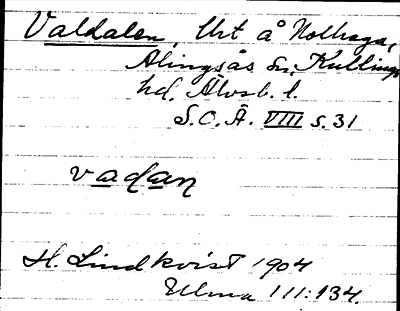 Valdalen, Urt å Nolhaga,
Alingsås sn, Kullings
hd. Älvsb. l.
S.O.Ä. VIII s. 31
vadan
H. Lindkvist 1904
Ulma 111:134.